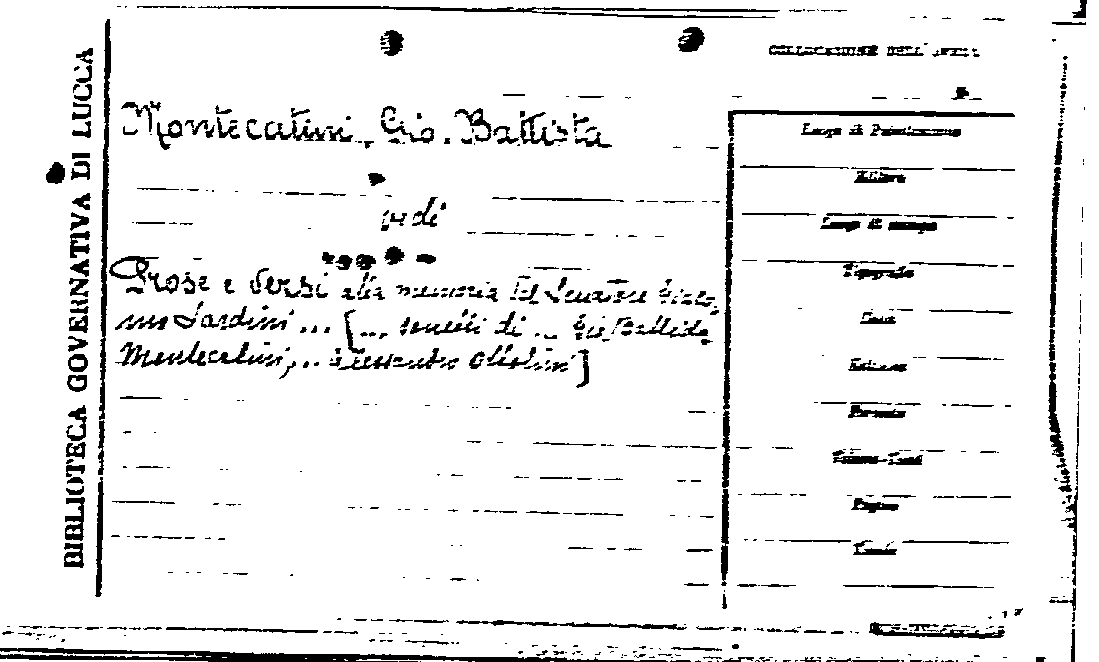 BIBLIOTECA GOVERNATIVA DI LUCCA
COLLOCAZIONE DELL'OPERA
Montecatini, Gio. Battista
vedi
Prose e versi alla memoria del Senatore Girolamo
Sardini ... [ ... sonetti di ... Gio Battista
Montecatini, ... Alessandro Ottolini]
Luogo di Pubblicazione
Editore
Luogo di stampa
Tipografo
Data
Edizione
Formato
Volume-Tomi
Pagine